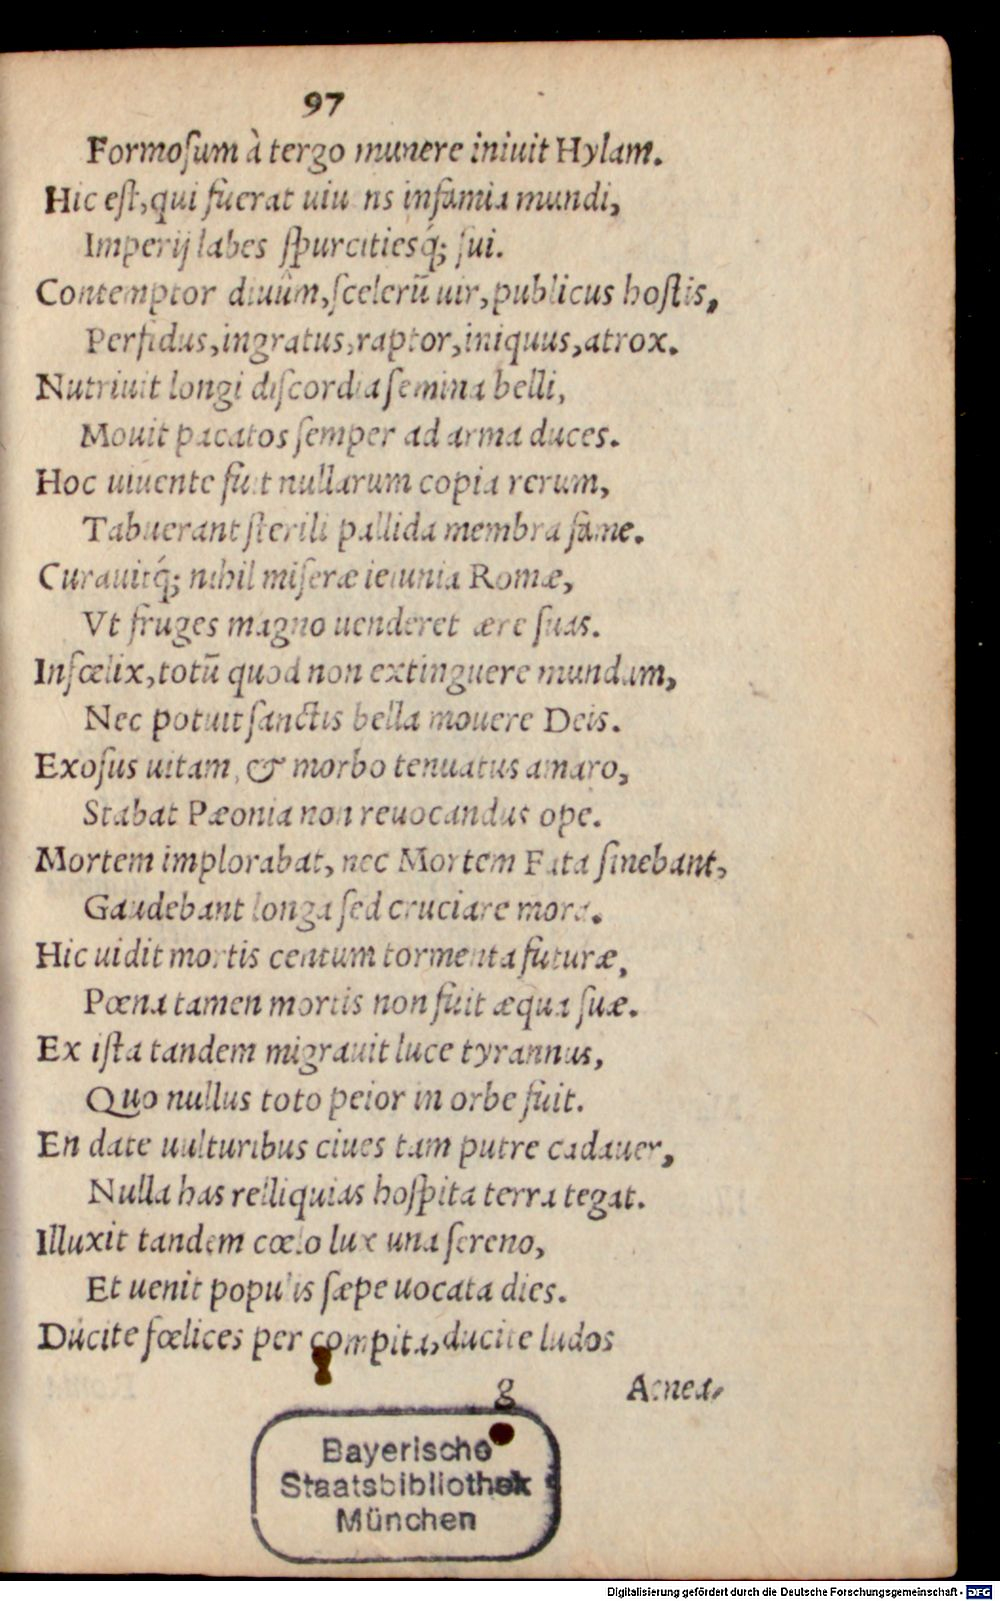 97
Formoſum à tergo munere iniuit Hylam.
Hic eſt, qui fuerat uiu ns infamia mundi,
Imperij labes ſpurcitiesq́; ſui.
Contemptor diuûm, ſcelerũ uir, publicus hoſtis,
Perfidus, ingratus, raptor, iniquus, atrox.
Nutriuit longi diſcordia ſemina belli,
Mouit pacatos ſemper ad arma duces.
Hoc uiuente fuit nullarum copia rerum,
Tabuerant ſterili pallida membra fame.
Curauitq́; nihil miſeræ ieiunia Romæ,
Vt fruges magno uenderet ære ſuas.
Infœlix, totũ quod non extinguere mundum,
Nec potuit ſanctis bella mouere Deis.
Exoſus uitam, & morbo tenuatus amaro,
Stabat Pæonia non reuocandus ope.
Mortem implorabat, nec Mortem Fata ſinebant,
Gaudebant longa ſed cruciare mora.
Hic uidit mortis centum tormenta futuræ,
Pœna tamen mortis non fuit æqua ſuæ.
Ex iſta tandem migrauit luce tyrannus,
Quo nullus toto peior in orbe fuit.
En date uulturibus ciues tam putre cadauer,
Nulla has relliquias hoſpita terra tegat.
Illuxit tandem cœlo lux una ſereno,
Et uenit populis ſæpe uocata dies.
Ducite fœlices per compita, ducite ludos
g Aenea-
Bayerische
Staatsbibliothek
München
Digitalisierung gefördert durch die Deutsche Forschungsgemeinschaft - DFG